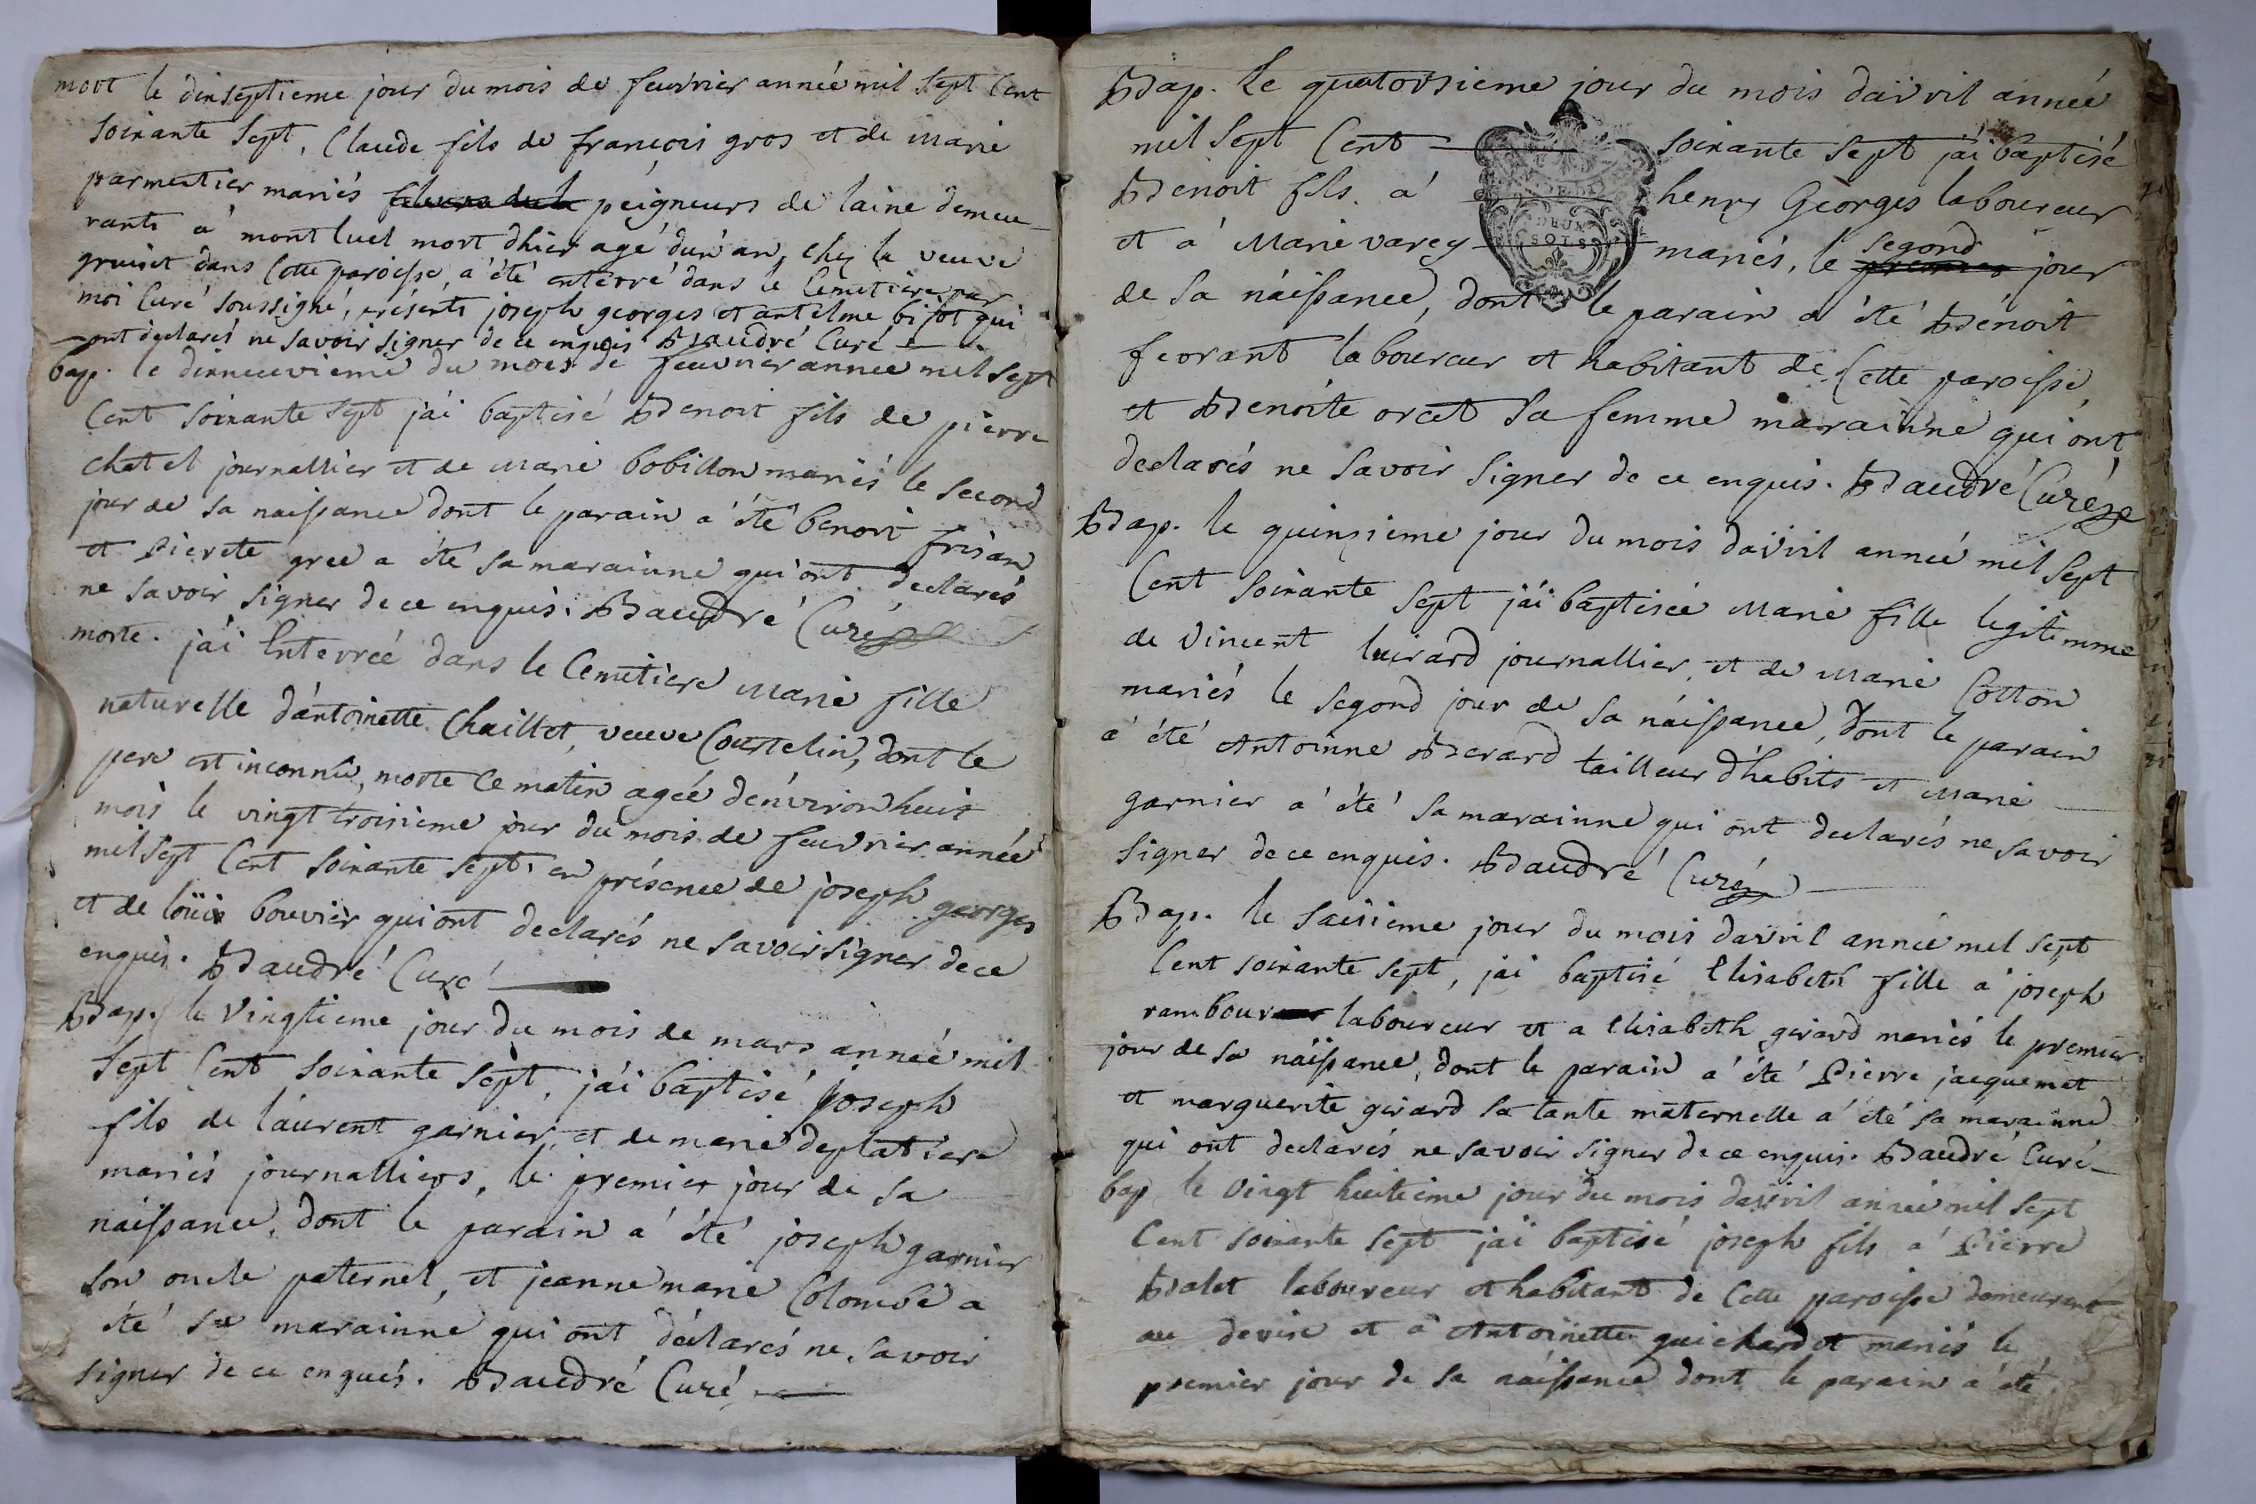 mort le dixseptieme jour du mois de feuvrier année mil sept Cent
soixante sept, Claude fils de françois gros et de marie
parmentier mariés peigneurs de laine demeu
rants á montluel mort d'hier agé dun an, chez la veuve
gruiset dans Cette paroisse, a été enterré dans le Cemetiere par
moi Curé soussigné, présents joseph georges et antelme bisot qui
ont declarés ne savoir signer de ce enquis Baudré Curé
bap. le dixneuvieme du mois de feuvrier année mil sept
Cent soixante sept jai baptisé Benoit fils de pierre
chatel journallier et de Marie bobillon mariés le second
jour de sa naissance dont le parain a été benoit frisan
et pierete gree a été sa marainne qui ont declarés
ne savoir signer de ce enquis. Baudré Curé
morte. jai Enterrée dans le Cemetiere Marie fille
naturelle d'antoinette Chaillet, veuve Courtelin, dont le
pere est inconnu, morte ce matin agée d'environ huit
mois le vingt troisieme jour du mois de feuvrier année
mil sept Cent soixante sept, en présence de joseph georges
et de loüis bouvier qui ont declarés ne savoir signer de ce
enquis. Baudré Curé
Bap. le vingtieme jour du mois de mars année mil
sept Cent soixante sept, jai baptisé joseph
fils de laurent garnier, et de marie deplatiere
mariés journalliers, le premier jour de sa
naissance, dont le parain a été joseph garnier
son oncle paternel, et jeanne marie Colombe a
été sa marainne qui ont declarés ne savoir
signer de ce enquis. Baudré Curé
Bap. le quatorsieme jour du mois davril année
mil sept Cent soixante sept jai baptisé
Benoit fils á henry Georges laboureur
et á Marie varey mariés, le segond jour
de sa naissance, dont le parain a été Benoit
feorant laboureur et habitant de Cette paroisse,
et Benoite orcet sa femme marainne qui ont
declarés ne savoir signer de ce enquis. Baudré Curé
Bap. le quinzieme jour du mois davril année mil sept
Cent soixante sept jai baptisée Marie fille legitimme
de Vincent luirard journallier, et de Marie Cotton
mariés le segond jour de sa naissance, dont le parain
a été Antoinne Berard tailleur d'habits et Marie
garnier a été sa marainne qui ont declarés ne savoir
signer de ce enquis. Baudré Curé
Bap. le saisieme jour du mois davril année mil sept
Cent soixante sept, jai baptisé Elisabeth fille a joseph
rambour laboureur et a Elisabeth girard mariés le premier
jour de sa naissance, dont le parain a été Pierre jacquemet
et marguerite girard sa tante maternelle a été sa marainne
qui ont declarés ne savoir signer de ce enquis. Baudré Curé
bap le vingt huitieme jour du mois davril année mil sept
Cent soixante sept jai baptisé joseph fils a Pierre
Balet laboureur et habitant de Cette paroisse demeurent
au devin et a Antoinette guichardot mariés le
premier jour de sa naissance dont le parain a été
DEUX
SOLS